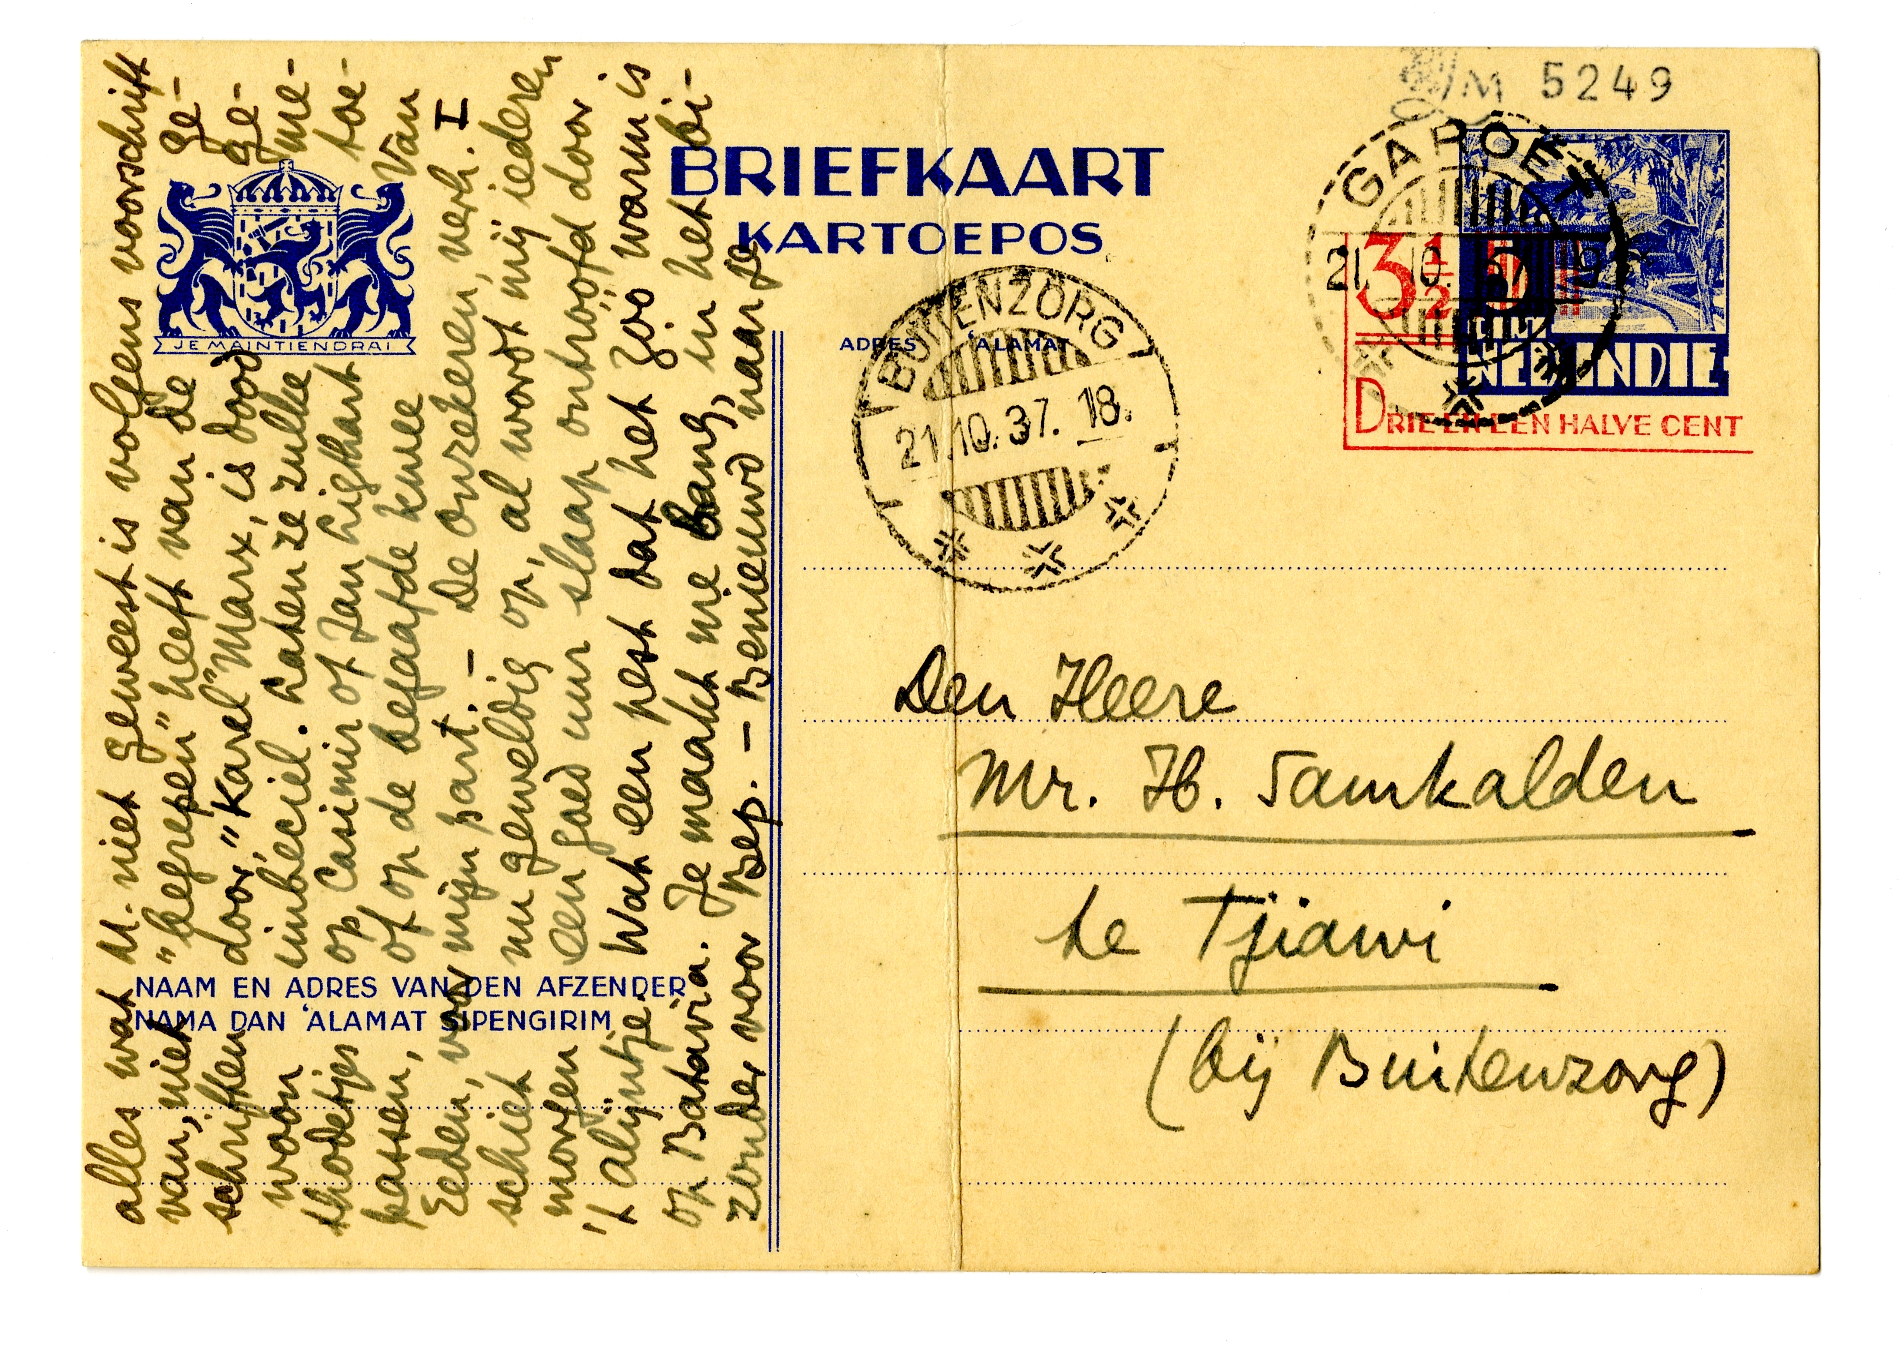 M 5249
BRIEFKAART
KARTOEPOS
GAROET
21. 10. 37. 19
3½
5
CENT
NED. INDIE
DRIE EN EEN HALVE CENT
JE MAINTIENDRAI
ADRES 'ALAMAT
BUITENZORG
21.10.37. 18.
Den Heere
Mr. H. Samkalden
te Tjiawi
(bij Buitenzorg)
NAAM EN ADRES VAN DEN AFZENDER
NAMA DAN 'ALAMAT SIPENGIRIM
alles wat M. niet geweest is volgens voorschrift
van, niet „begrepen" heeft van de ge-
schriften door „Karel" Marx, is dood ge-
woon imbeciel. Laten ze zulke me-
thodetjes op Casimir of Jan Ligthart toe-
passen, of op de begaafde knul Van
Eeden, voor mijn part. — De onzekeren, verh. I
schiet nu geweldig op, al wordt mij iederen
morgen een goed uur slaap ontroofd door
't alijntje. Wat een pest dat het zoo warm is
op Batavia. Je maakt me bang, in het bi-
zonder voor Bep. — Benieuwd naar je